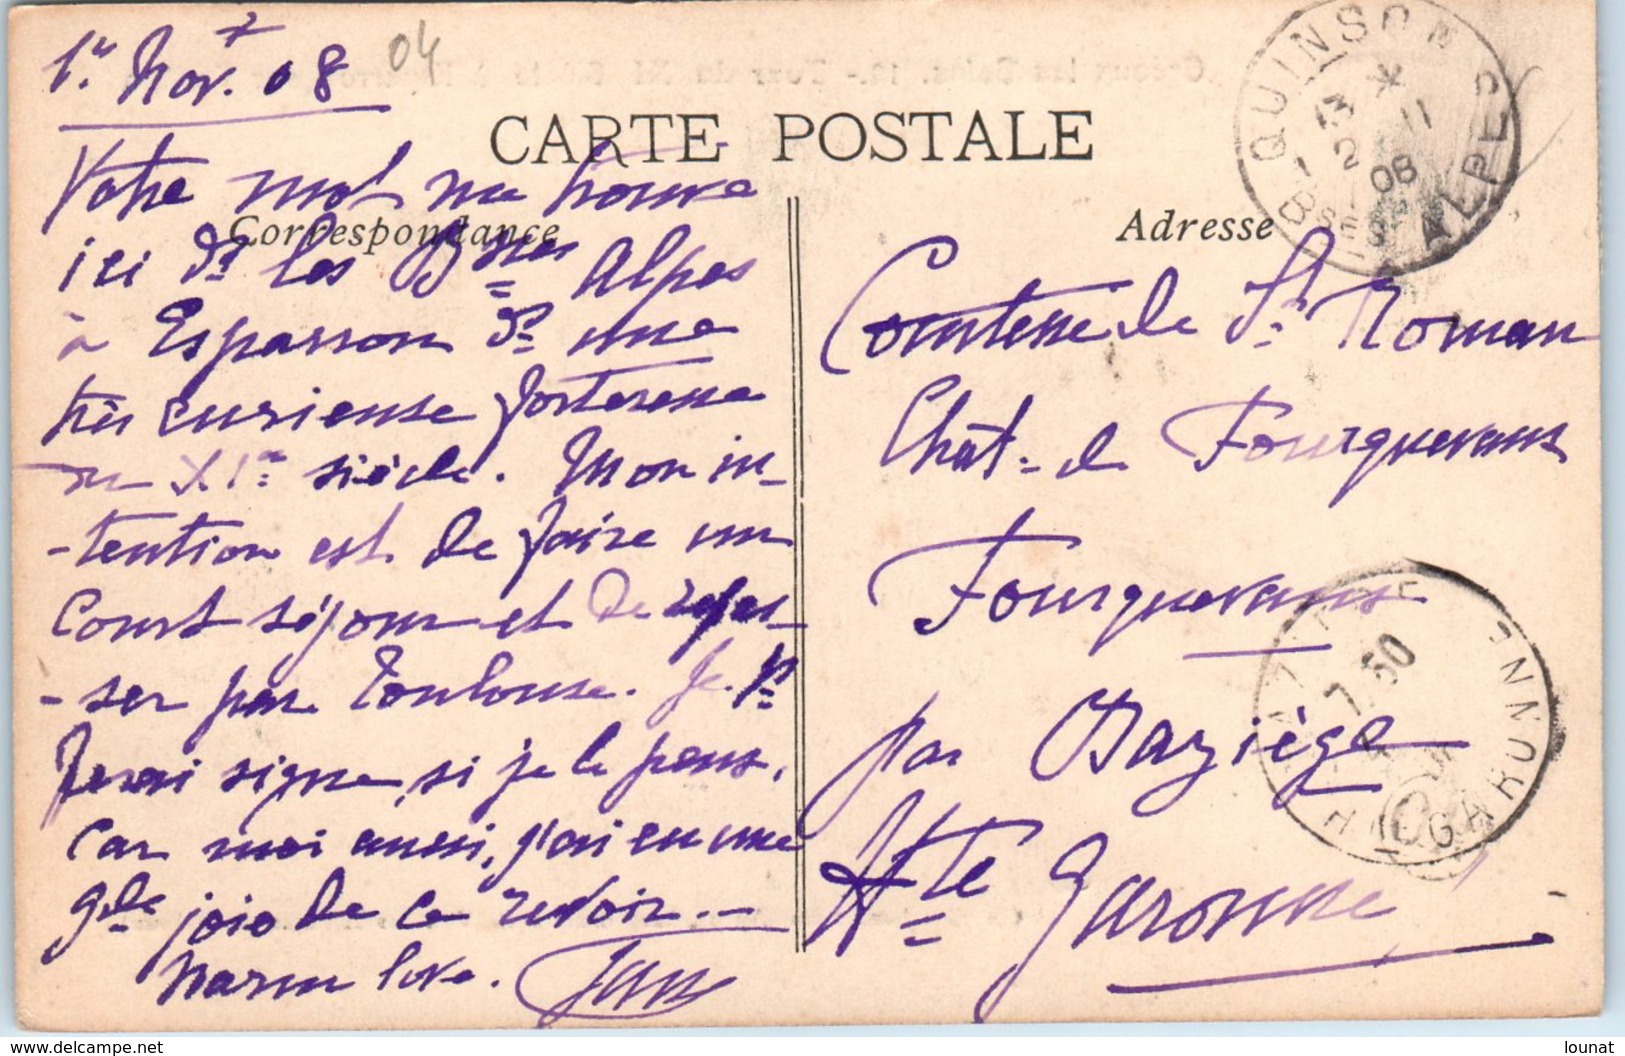 1er Nov. 08
04
CARTE POSTALE
Correspondance
Adresse
Votre mot me trouve
ici ds les Bsses Alpes
à Esparron ds une
très curieuse forteresse
du XIme siècle. Mon in-
-tention est de faire un
court séjour et de repas-
-ser par Toulouse. Je vs
ferai signe, si je le peux,
car moi aussi, j'ai eu une
gde joie de ce revoir.-
Warm love.
Comtesse de St Roman
Chât- de Fourquevaux
Fourquevaux
par Baziège
Hte Garonne
QUINSON
13 *
2 11
08
BSES ALPES
7 50
HTE GARONNE
www.delcampe.net
lounat